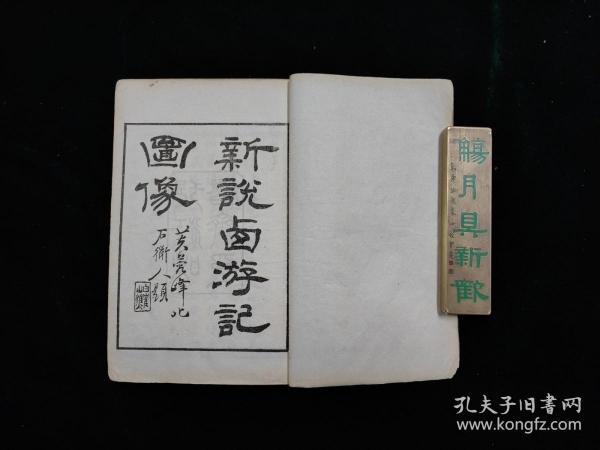 新說西游記
圖像
芙蓉峰北
石衕人題
觴月具新歡
孔夫子旧书网
www.kongfz.com